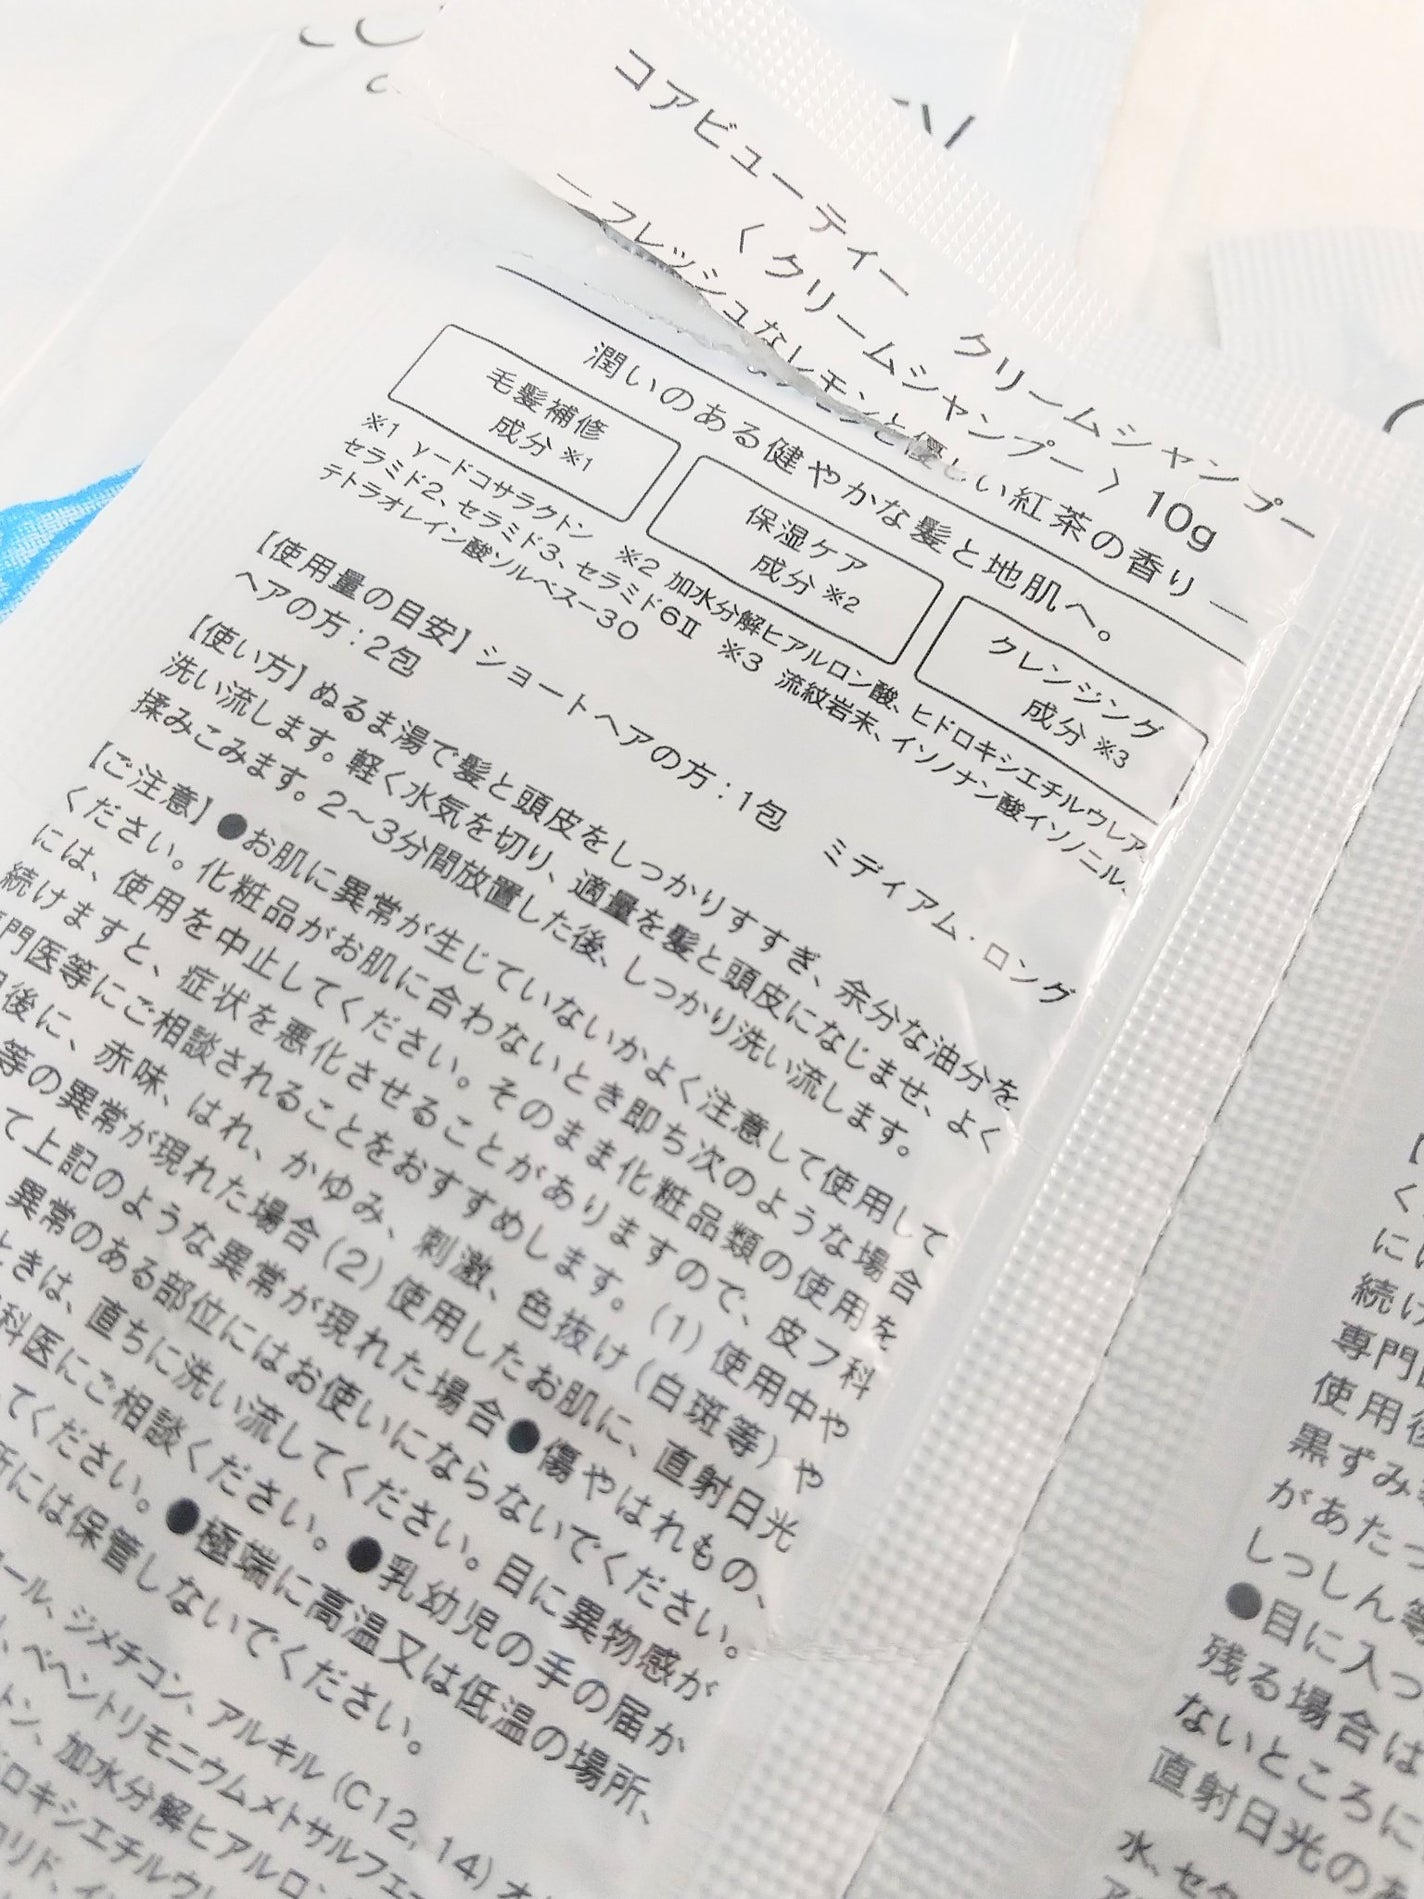 コアビューティー クリームシャンプー
〈クリームシャンプー〉10g
ーフレッシュなレモンと優しい紅茶の香りー
潤いのある健やかな髪と地肌へ。
毛髪補修
成分※1
保湿ケア
成分※2
クレンジング
成分※3
※1 γードコサラクトン ※2 加水分解ヒアルロン酸、ヒドロキシエチルウレア、
セラミド2、セラミド3、セラミド6Ⅱ ※3 流紋岩末、イソノナン酸イソノニル、
テトラオレイン酸ソルベス-30
【使用量の目安】ショートヘアの方:1包 ミディアム・ロング
ヘアの方:2包
【使い方】ぬるま湯で髪と頭皮をしっかりすすぎ、余分な油分を
洗い流します。軽く水気を切り、適量を髪と頭皮になじませ、よく
揉みこみます。2〜3分間放置した後、しっかり洗い流します。
【ご注意】●お肌に異常が生じていないかよく注意して使用して
ください。化粧品がお肌に合わないとき即ち次のような場合
には、使用を中止してください。そのまま化粧品類の使用を
続けますと、症状を悪化させることがありますので、皮フ科
門医等にご相談されることをおすすめします。(1)使用中や
後に、赤味、はれ、かゆみ、刺激、色抜け(白斑等)や
等の異常が現れた場合(2)使用したお肌に、直射日光
て上記のような異常が現れた場合●傷やはれもの、
異常のある部位にはお使いにならないでください。
ときは、直ちに洗い流してください。目に異物感が
科医にご相談ください。●乳幼児の手の届か
てください。●極端に高温又は低温の場所、
所には保管しないでください。
ール、ジメチコン、アルキル(C12,14)オ
ベヘントリモニウムメトサルフェー
トン、加水分解ヒアルロ
ロキシエチルウ
【
く
に
続け
専門
使用後
黒ずみ
があたっ
しっしん等
●目に入っ
残る場合は
ないところに
直射日光の
水、セタ